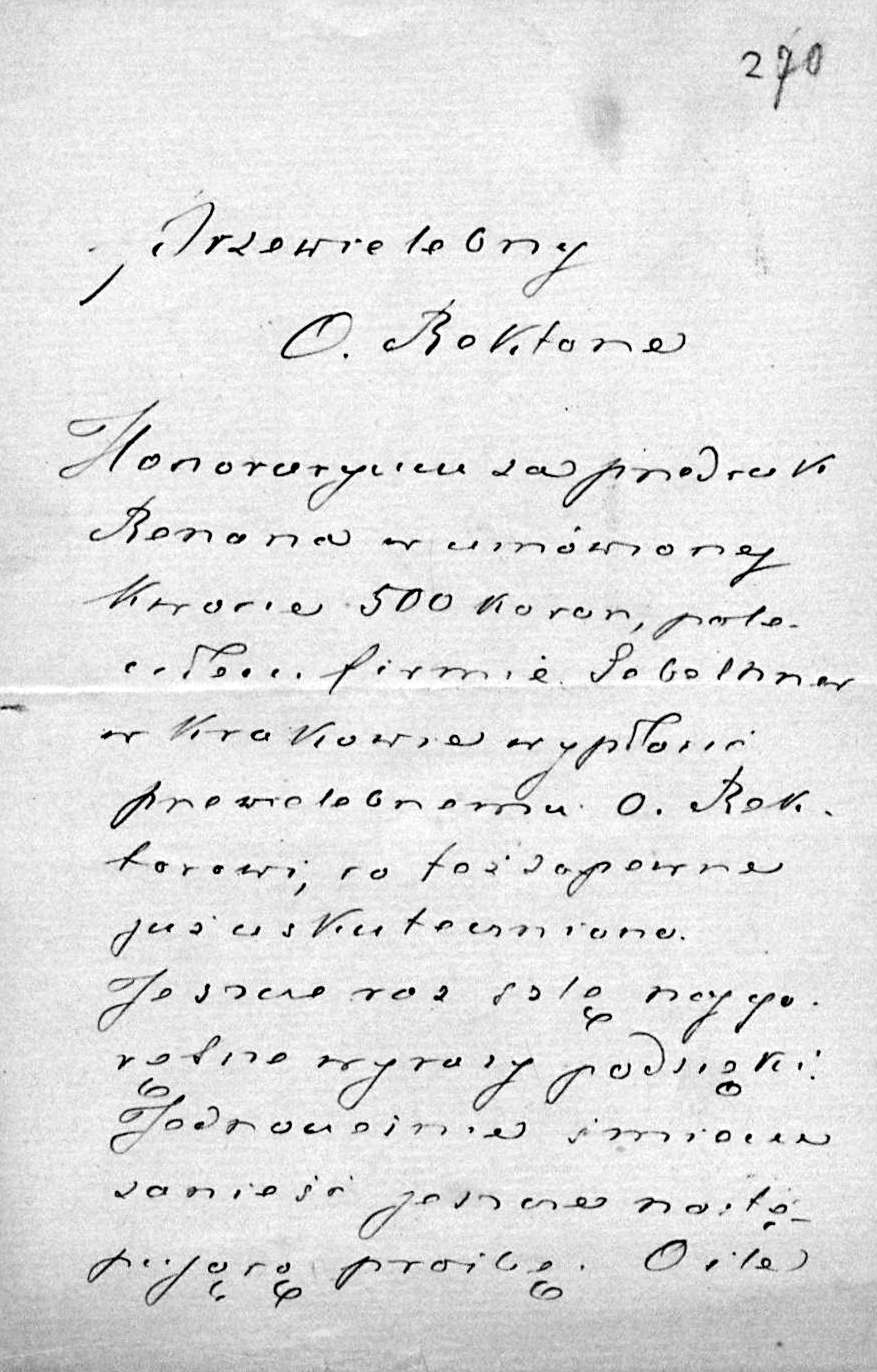 270
Przewielebny
O. Rektorze
Honoraryum za przedruk
Renana w umówionej
kwocie 500 koron, pole-
ciłem firmie Gebethner
w Krakowie wypłacić
przewielebnemu O. Rek-
torowi, co też zapewne
już uskuteczniono.
Jeszcze raz ślę najgo-
rętsze wyrazy podzięki.
Jednocześnie śmiem
zanieść jeszcze nastę-
pującą prośbę. O ile